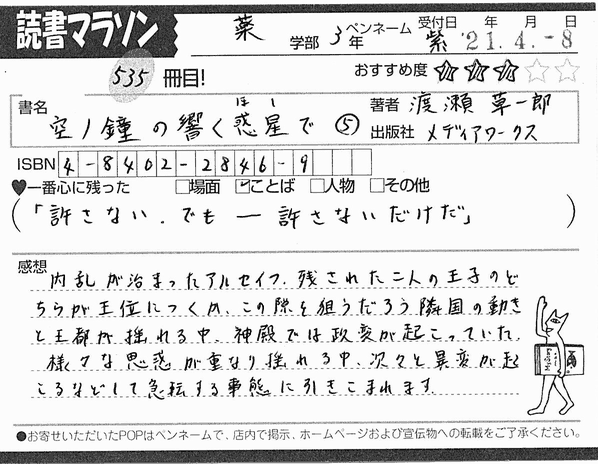 読書マラソン
薬 学部 3年 ペンネーム 紫 受付日 年 月 日
'21.4.-8
535 冊目!
おすすめ度 ☆☆☆☆☆
書名 空ノ鐘の響く惑星(ほし)で ⑤
著者 渡瀬草一郎
出版社 メディアワークス
ISBN 4-8402-2846-9
♥一番心に残った □場面 ☑ことば □人物 □その他
(「許さない.でも ― 許さないだけだ」)
感想
内乱が治まったアルセイフ.残された二人の王子のど
ちらが王位につくか、この隙を狙うだろう隣国の動き
と王都が揺れる中、神殿では政変が起こっていた.
様々な思惑が重なり揺れる中、次々と異変が起
こるなどして急転する事態に引きこまれます.
●お寄せいただいたPOPはペンネームで、店内で掲示、ホームページおよび宣伝物への転載をご了承ください。